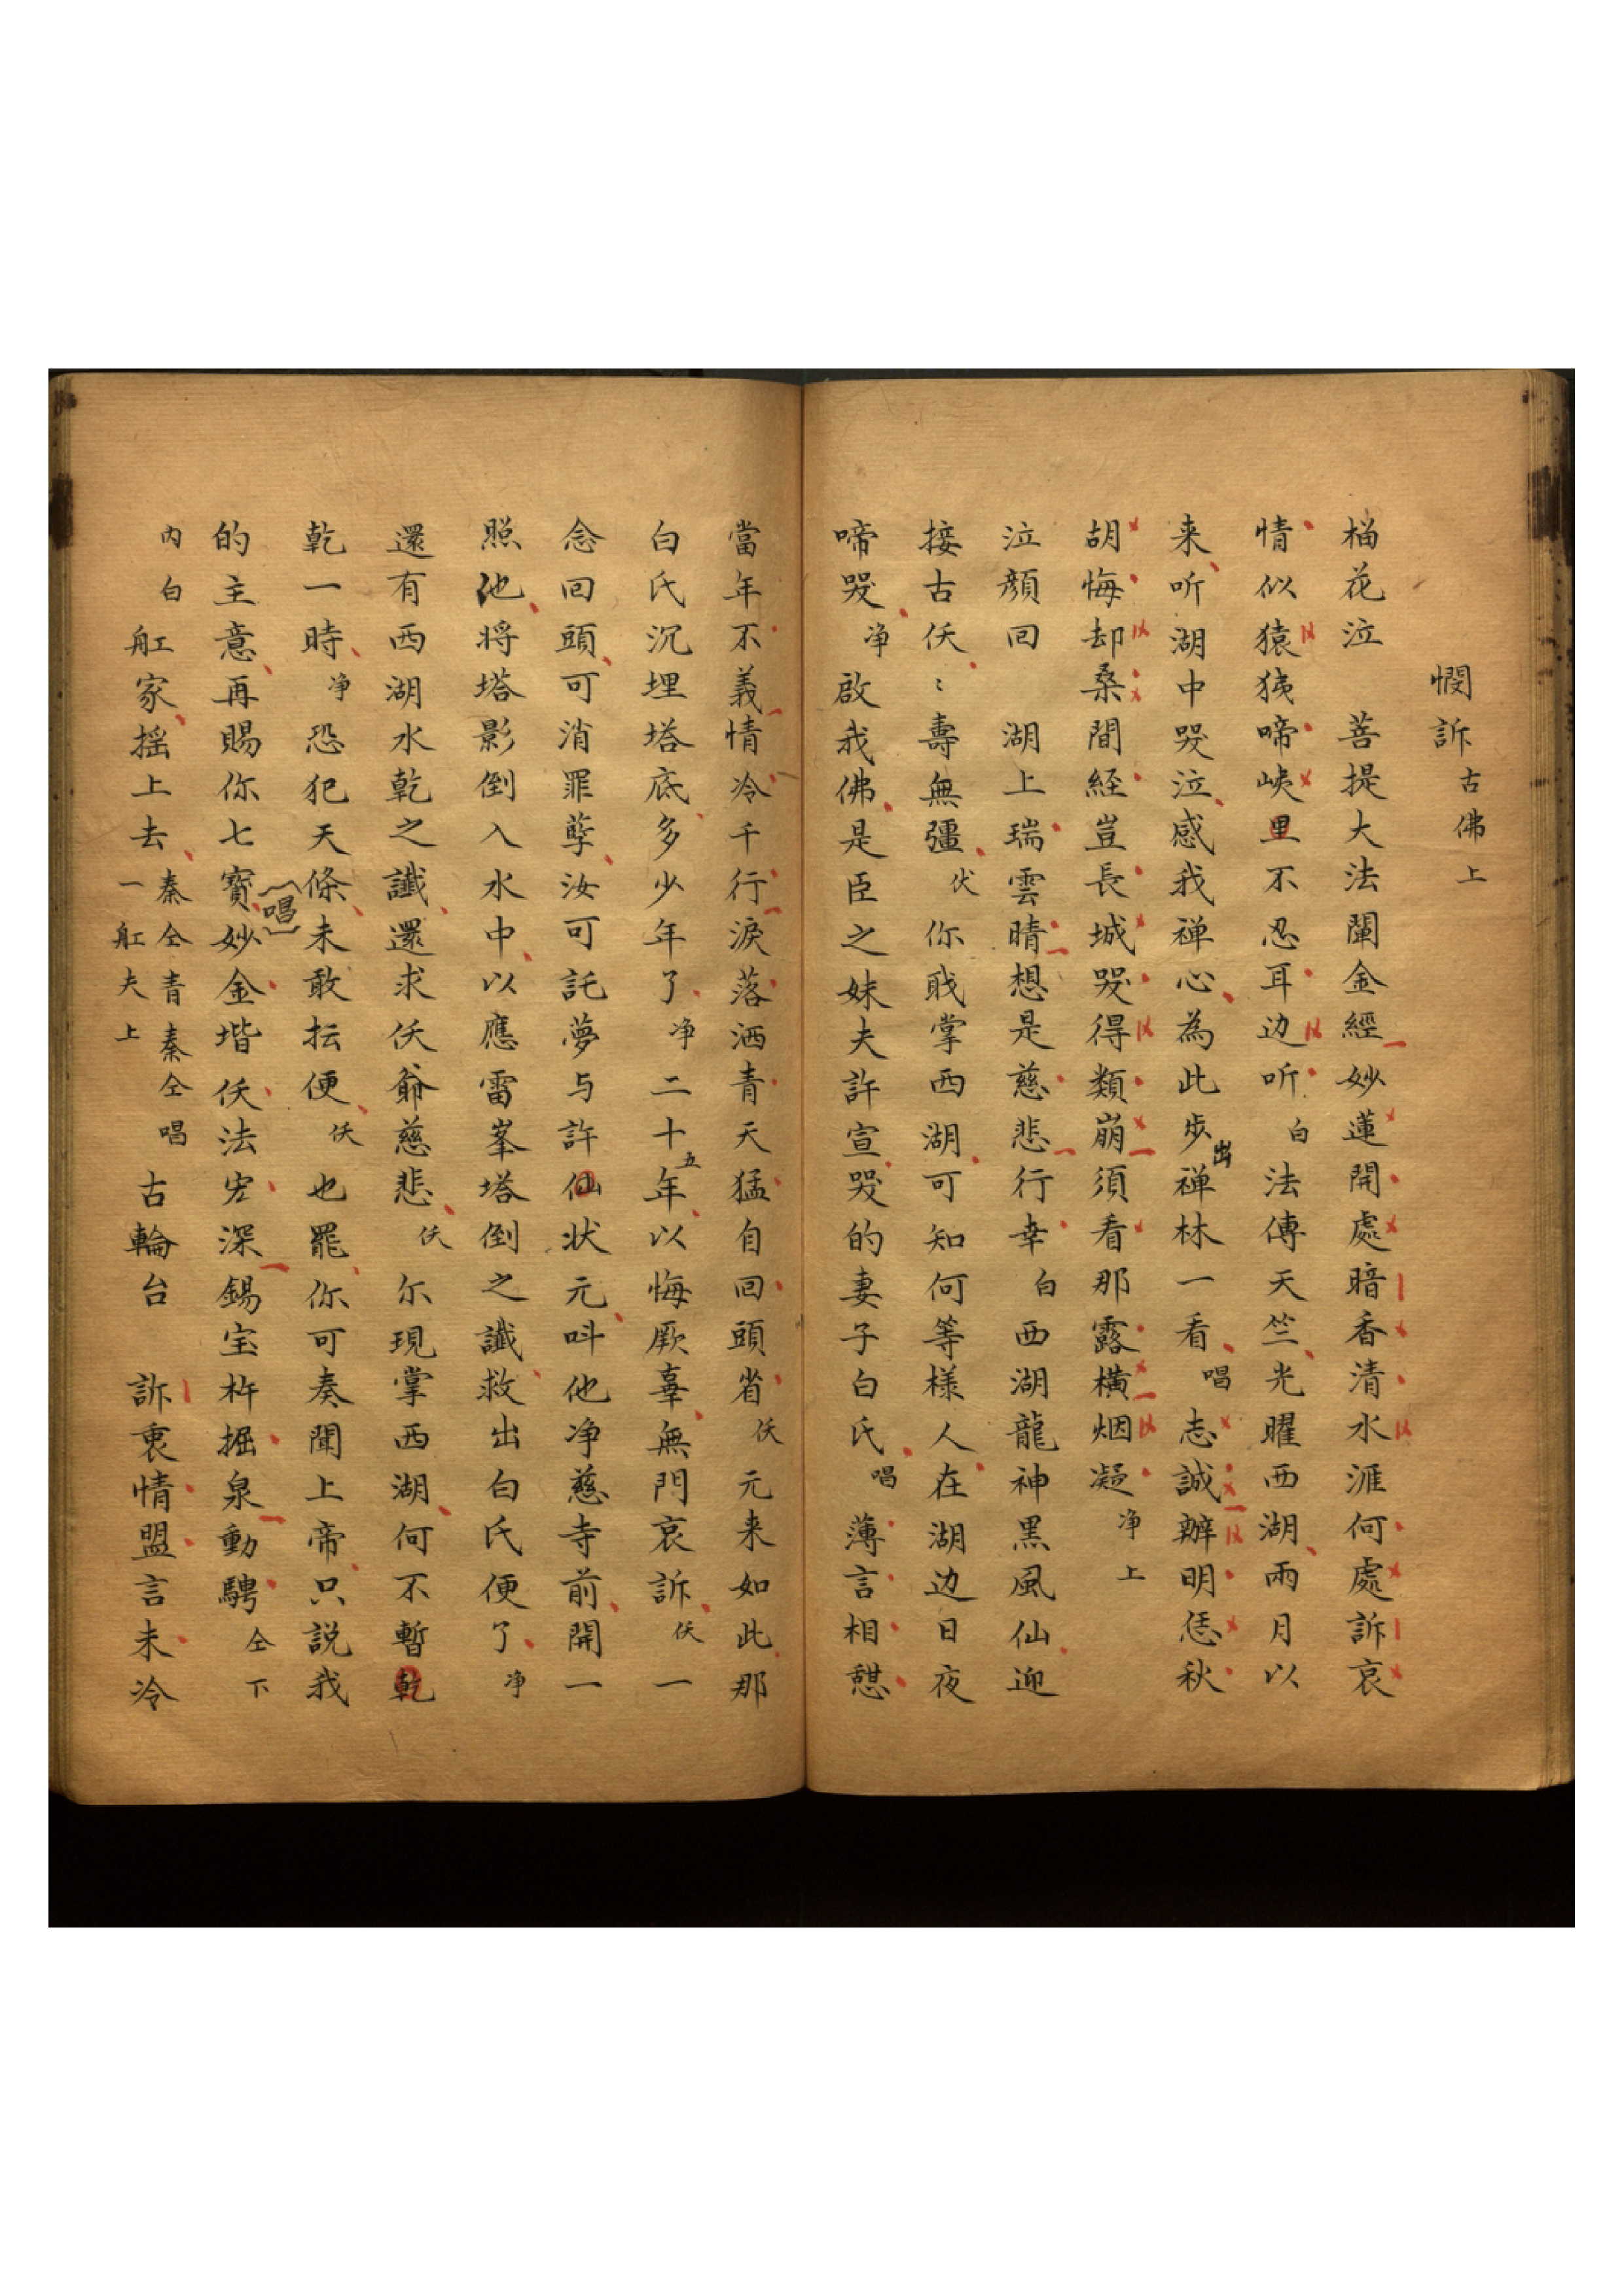 憫訴 古佛上
榴花泣 菩提大法闡金經妙蓮開處暗香清水涯何處訴哀
情似猿猿啼峽里不忍耳边听 白 法傳天竺光曜西湖雨月以
来听湖中哭泣感我禅心為此步出禅林一看 唱 志誠辦明恁秋
胡悔却桑間経豈長城哭得類崩須看那露横烟凝 净上
泣顏回 湖上瑞雲晴想是慈悲行幸 白 西湖龍神黑風仙迎
接古佛〻壽無彊 佛 你戝掌西湖可知何等様人在湖边日夜
啼哭 净 啟我佛是臣之妹夫許宣哭的妻子白氏 唱 薄言相懟
當年不義情冷千行淚落洒青天猛自回頭省 佛 元来如此那
白氏沉埋塔底多少年了 净 二十五年以悔厥辜無門哀訴 佛 一
念回頭可消罪孽汝可託夢与許仙状元呌他净慈寺前開一
照他将塔影倒入水中以應雷峯塔倒之讖救出白氏便了 净
還有西湖水乾之讖還求佛爺慈悲 佛 尔現掌西湖何不暫乾
乾一時 净 恐犯天條未敢抎便 佛 也罷你可奏聞上帝只説我
的主意再賜你七寶 唱 妙金堦佛法宏深錫宝杵掘泉動騁 仝下
内白 舡家摇上去 秦仝青秦仝唱 一舡夫上 古輪台 訴衷情盟言未冷